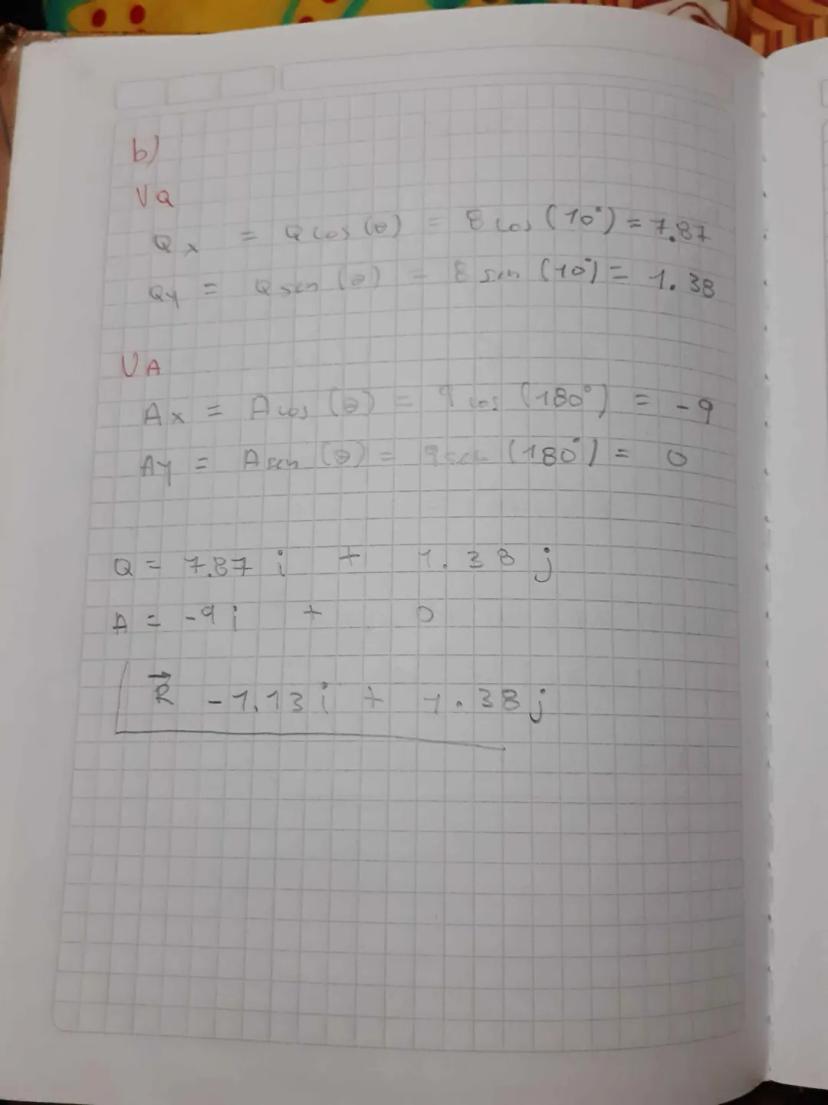 b)
VQ
Qx = Q cos (θ) = 8 cos (10°) = 7.87
Qy = Q sen (θ) = 8 sen (10°) = 1.38
VA
Ax = A cos (θ) = 9 cos (180°) = -9
Ay = A sen (θ) = 9 sen (180°) = 0
Q = 7.87 i + 1.38 j
A = -9 i + 0
R⃗ -1.13 i + 1.38 j